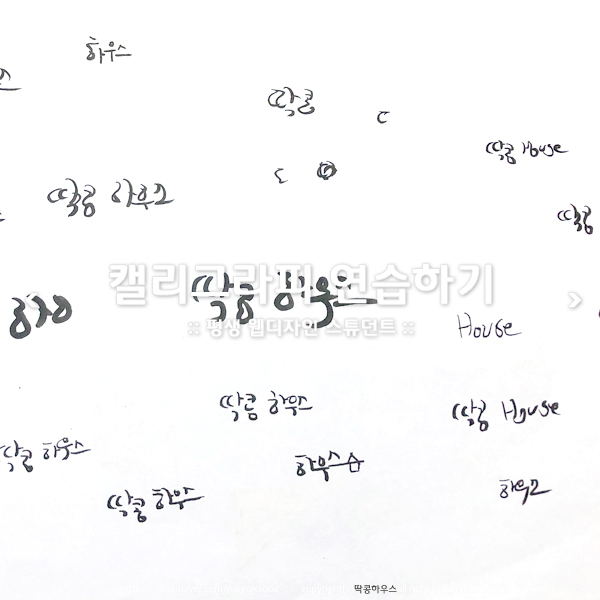 하우스
딱콩
ㄷ
딱콩 House
ㄷ
딱콩 하우스
딱콩
캘리그라피 연습하기
딱콩 하우스
:: 평생 웹디자인 스튜던트 ::
House
딱콩 하우스
딱콩 House
딱콩 하우스
하우스
딱콩 하우스
하우스
딱콩하우스